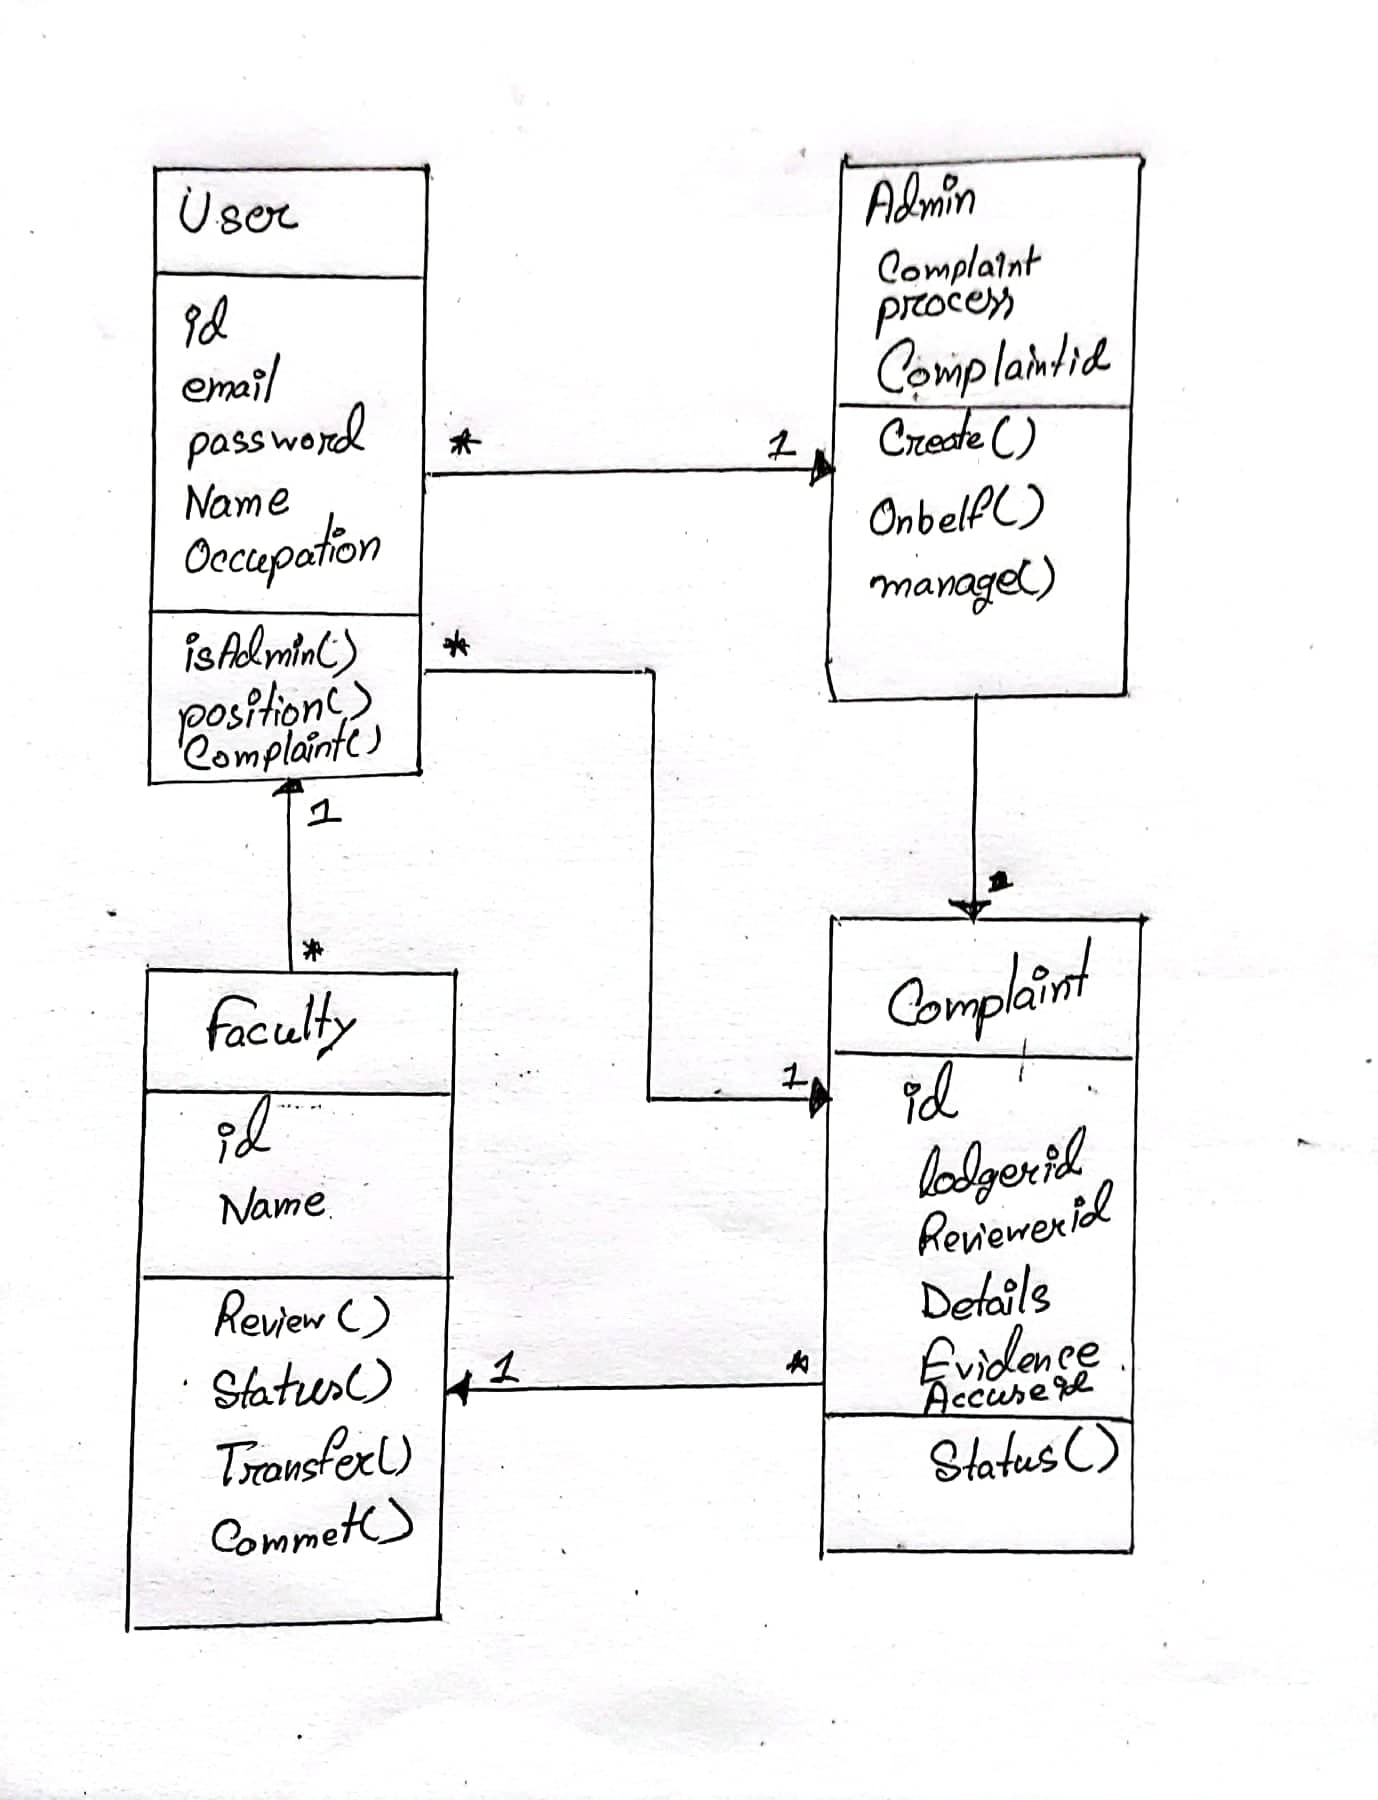 User
id
email
password
Name
Occupation
isAdmin()
position()
Complaint()
Admin
Complaint
process
Complaintid
Create()
Onbelf()
manage()
*
1
*
1
*
1
Faculty
id
Name
Review()
Status()
Transfer()
Commet()
Complaint
id
lodgerid
Reviewerid
Details
Evidence
Status()
1
*